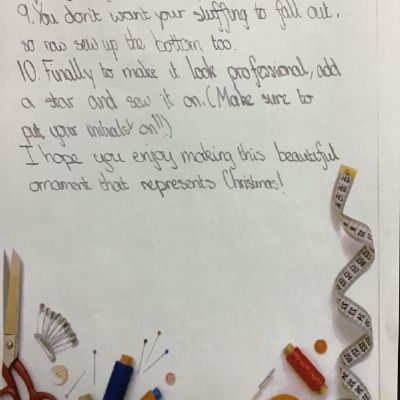 9. You don't want your stuffing to fall out,
so now sew up the bottom too.
10. Finally to make it look professional, add
a star and sew it on. (Make sure to
put your initials on!)
I hope you enjoy making this beautiful
ornament that represents Christmas!